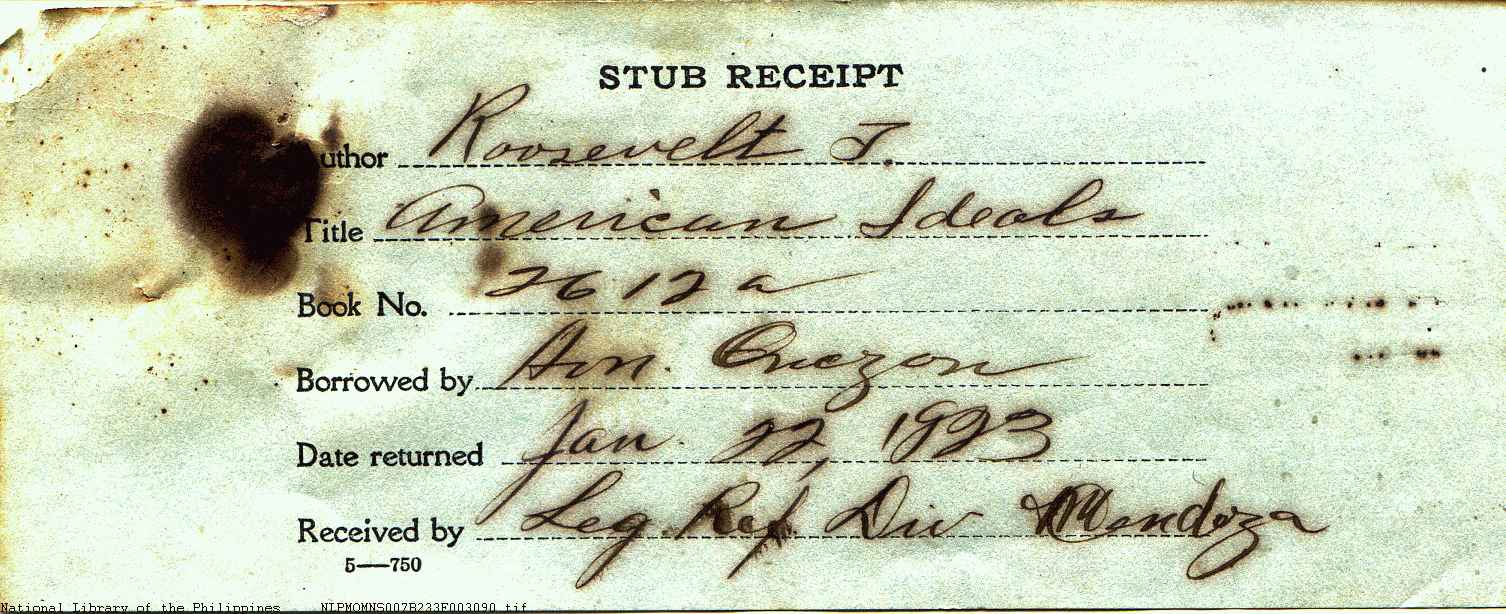 STUB RECEIPT
Author Roosevelt T.
Title American Ideals
Book No. 2612a
Borrowed by Hon. Quezon
Date returned Jan. 22, 1923
Received by Leg. Ref. Div Mendoza
5—750
National Library of the Philippines NLPMOMNS007B233F003090.tif